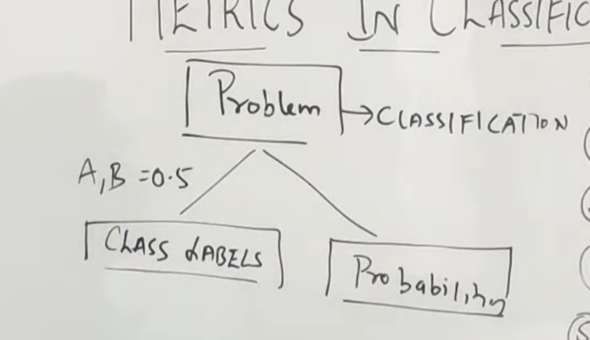 METRICS IN CLASSIFIC
Problem
CLASSIFICATION
A,B =0.5
CLASS LABELS
Probability